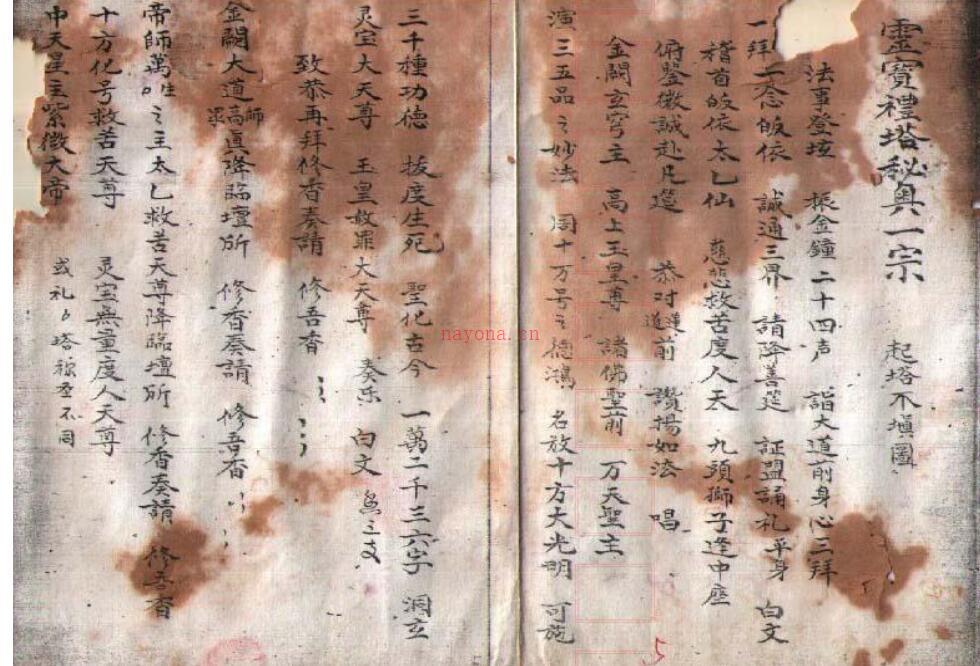 靈寶禮塔秘奥一宗 起塔不填圖
法事登壇 振金鐘二十四声 詣大道前身心三拜
一拜一念皈依 誠通三界 請降善筵 証盟誦礼平身 白文
稽首皈依太乙仙 慈悲救苦度人天 九頭獅子逢中座
俯鑒微誠赴凡筵 恭对蓮道前 讚揚如法 唱
金闕玄穹主 高上玉皇尊 諸佛聖前 万天聖主
演三五品之妙法 周十万号之德鴻 名放十方大光明 可施
三千種功德 拔度生死 聖化古今 一萬二千三六字 洞玄
灵宝大天尊 玉皇赦罪大天尊 奏乐 白文
致恭再拜修香奏請 修吾香
金闕大道高真降臨壇所 修香奏請 修吾香
帝師萬生之主太乙救苦天尊降臨壇所 修香奏請 修吾香
十方化号救苦天尊 灵宝無量度人天尊
中天星主紫微大帝 或礼塔 不同
nayona.cn
5